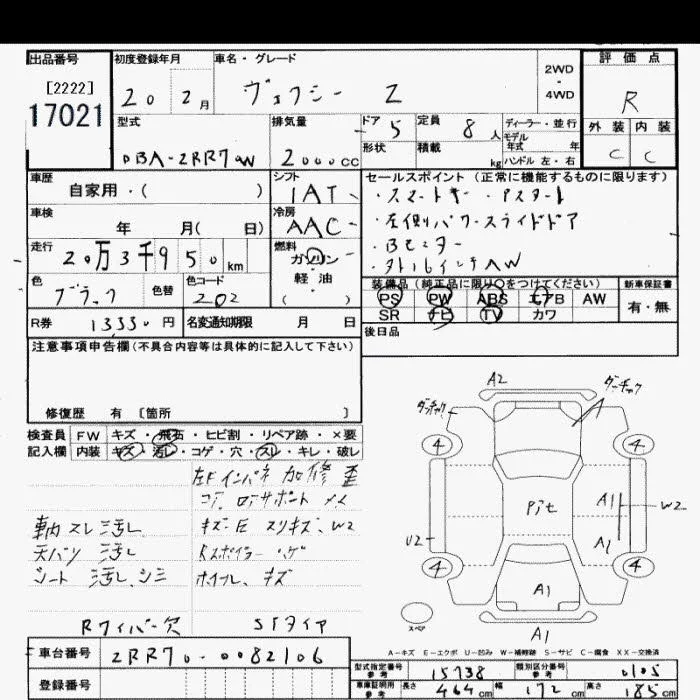 出品番号 初度登録年月 車名・グレード 評価点
[2222] 20 2月 ヴォクシー Z 2WD・4WD R
17021
型式 排気量 ドア 5 定員 8人 ディーラー・並行 外装 内装
DBA-ZRR70W 2000cc 形状 積載 kg モデル年式 年 C C
ハンドル 左・右
車歴 シフト セールスポイント(正常に機能するものに限ります)
自家用・( ) IAT ・スマートキー・Pスタート
車検 冷房 ・左側パワースライドドア
年 月( 日) AAC ・Bモニター
走行 燃料 ・外16インチAW
20万3千950km ガソリン
色 色替 色コード 軽油 装備品(純正品に限り○をつけてください) 新車保証書
ブラック 202 ( ) PS PW ABS エアB AW 有・無
R券 13330円 名変通知期限 月 日 SR ナビ TV カワ
後日品
注意事項申告欄(不具合内容等は具体的に記入して下さい)
修復歴 有 [箇所 ]
検査員 FW キズ・飛石・ヒビ割・リペア跡・×要
記入欄 内装 キズ・汚レ・コゲ・穴・スレ・キレ・破レ
左Fインパネ 加修 歪
コアロアサポート
車内スレ 汚レ スリキズ、W2
天バリ 汚レ ハゲ
シート 汚レ、シミ ホイール、キズ
Rワイパー欠 STタイヤ
A2
4 4
Pit A1 W2
U2 A1
4 4
A1
スペア A1
A-キズ E-エクボ U-凹み W-補修跡 S-サビ C-腐食 XX-交換済
車台番号 ZRR70-0082106 型式指定番号 参考 15738 類別区分番号 参考 0105
登録番号 車庫証明用 参考 長さ 464cm 幅 172cm 高さ 185cm